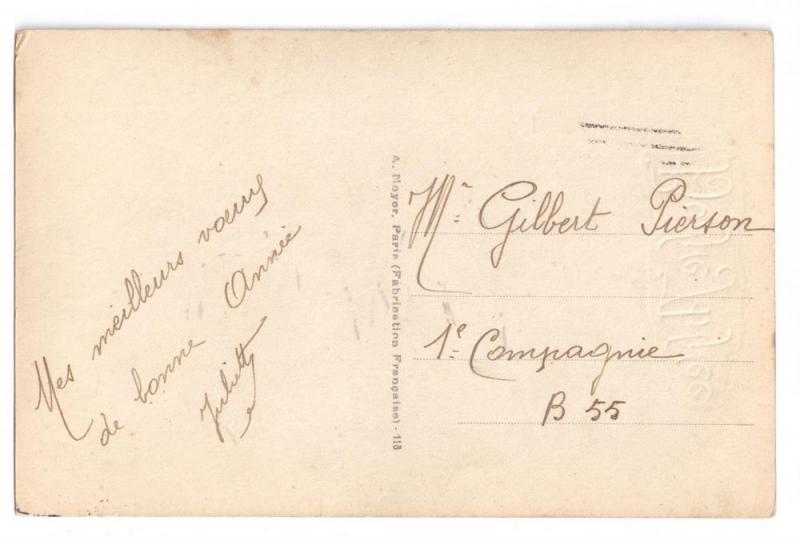 Mes meilleurs vœux
de bonne Année
Juliette
A. Noyer, Paris (Fabrication Française) - 118
Mr Gilbert Pierson
1e Compagnie
B 55